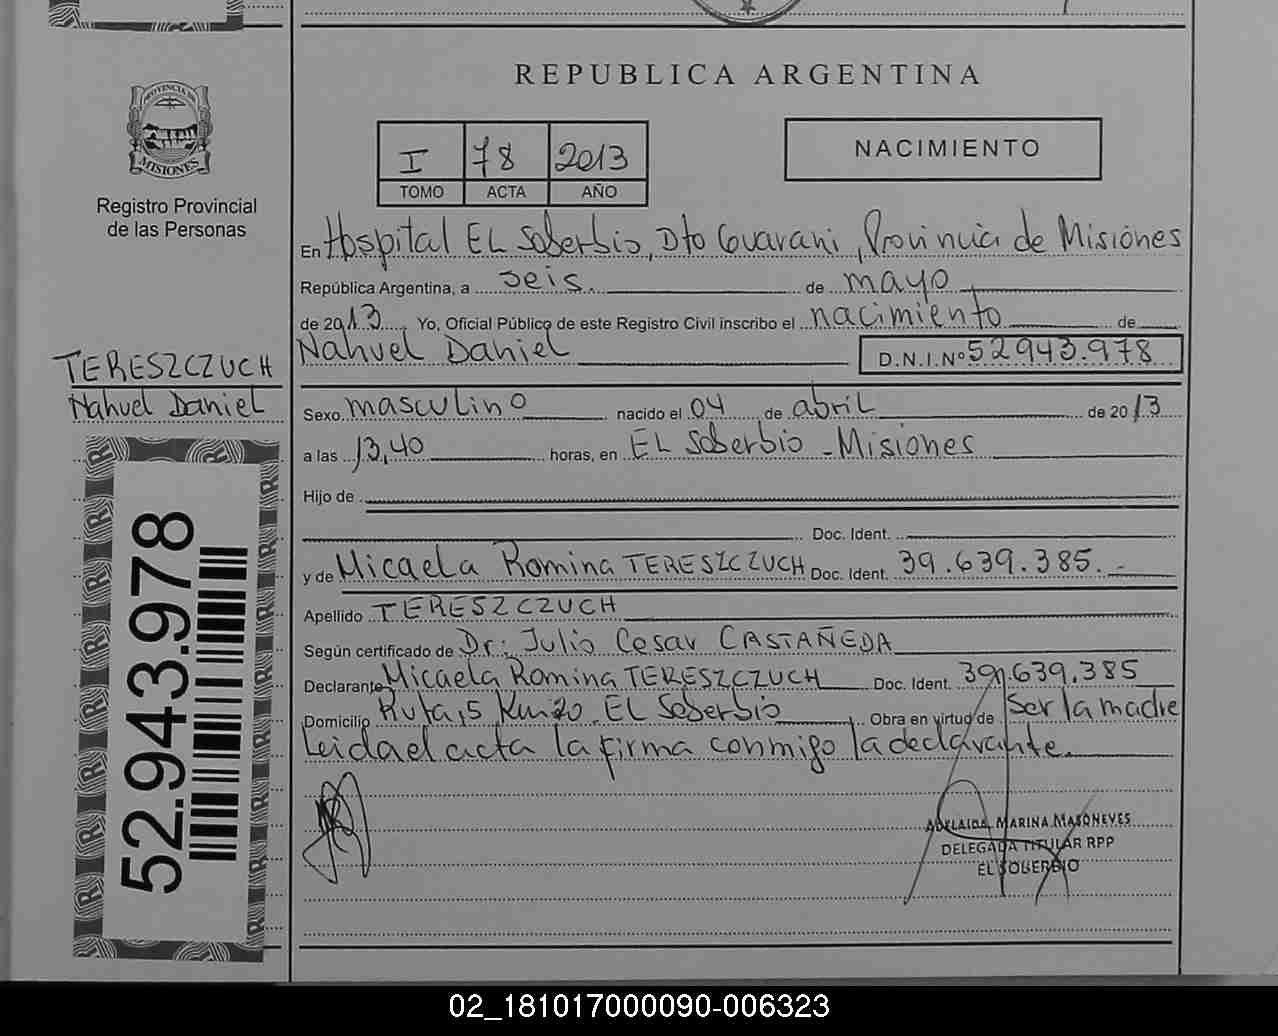 REPUBLICA ARGENTINA
PROVINCIA DE
MISIONES
Registro Provincial
de las Personas
I 78 2013
TOMO ACTA AÑO
NACIMIENTO
En Hospital EL Soberbio, Dto Guarani, Provincia de Misiones
República Argentina, a seis de mayo
de 2013 Yo, Oficial Público de este Registro Civil inscribo el nacimiento de
Nahuel Daniel D.N.I.Nº 52943.978
TERESZCZUCH
Nahuel Daniel
Sexo masculino nacido el 04 de abril de 2013
a las 13,40 horas, en EL Soberbio - Misiones
Hijo de
Doc. Ident.
y de Micaela Romina TERESZCZUCH Doc. Ident. 39.639.385.-
Apellido TERESZCZUCH
Según certificado de Dr: Julio Cesar CASTAÑEDA
Declarante Micaela Romina TERESZCZUCH Doc. Ident. 39.639.385
Domicilio Ruta 5 EL Soberbio Obra en virtud de ser la madre
Leida el acta la firma conmigo la declarante.
52.943.978
ADELAIDA MARINA MASONEVES
DELEGADA TITULAR RPP
EL SOBERBIO
02_181017000090-006323